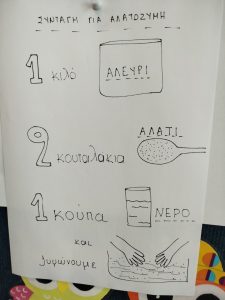 ΣΥΝΤΑΓΗ ΓΙΑ ΑΛΑΤΟΖΥΜΗ
1 κιλό ΑΛΕΥΡΙ
2 κουταλάκια ΑΛΑΤΙ
1 κούπα ΝΕΡΟ
και
ζυμώνουμε